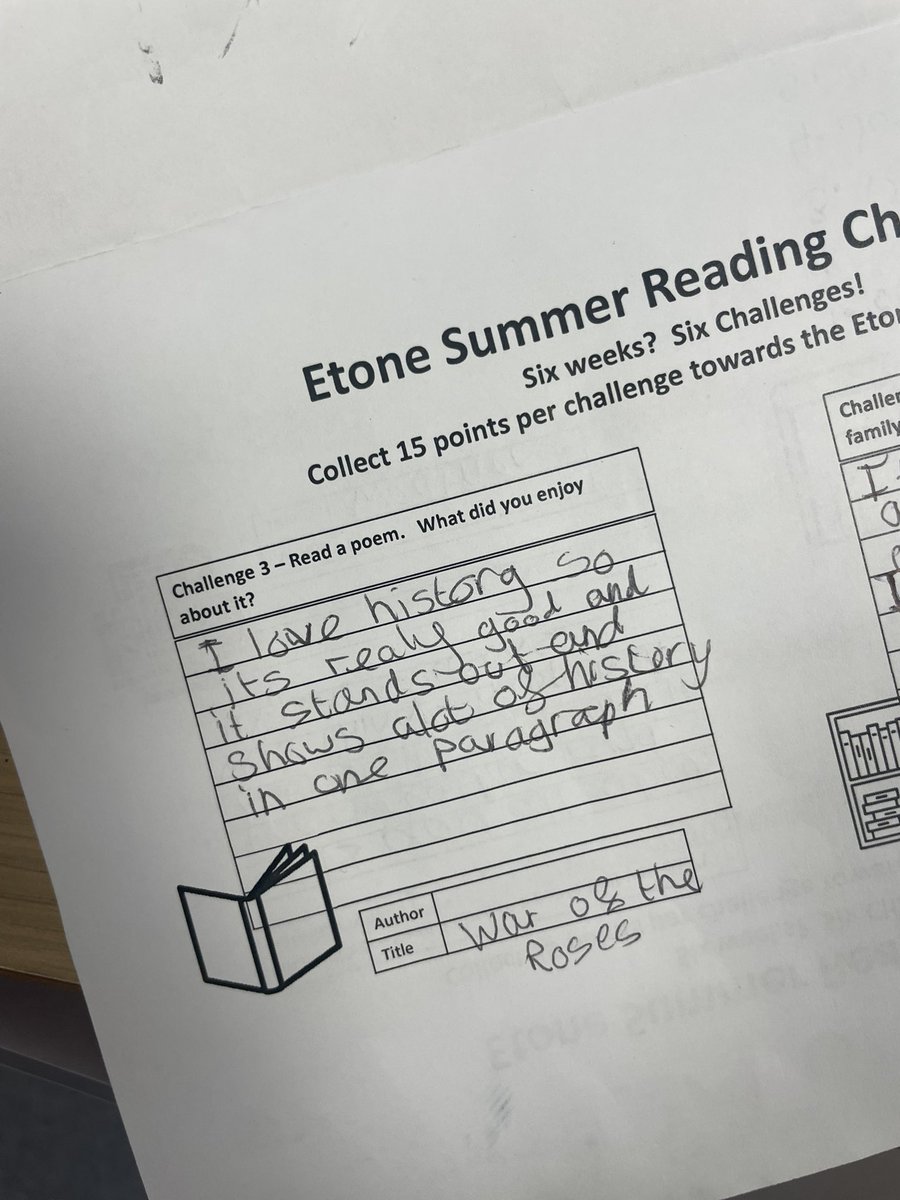 Etone Summer Reading Ch
Six weeks? Six Challenges!
Collect 15 points per challenge towards the Eton
Challenge 3 – Read a poem. What did you enjoy
about it?
I love history so
its realy good and
it stands out and
shows alot of history
in one paragraph
Author
Title
War of the
Roses
Challen
family
I